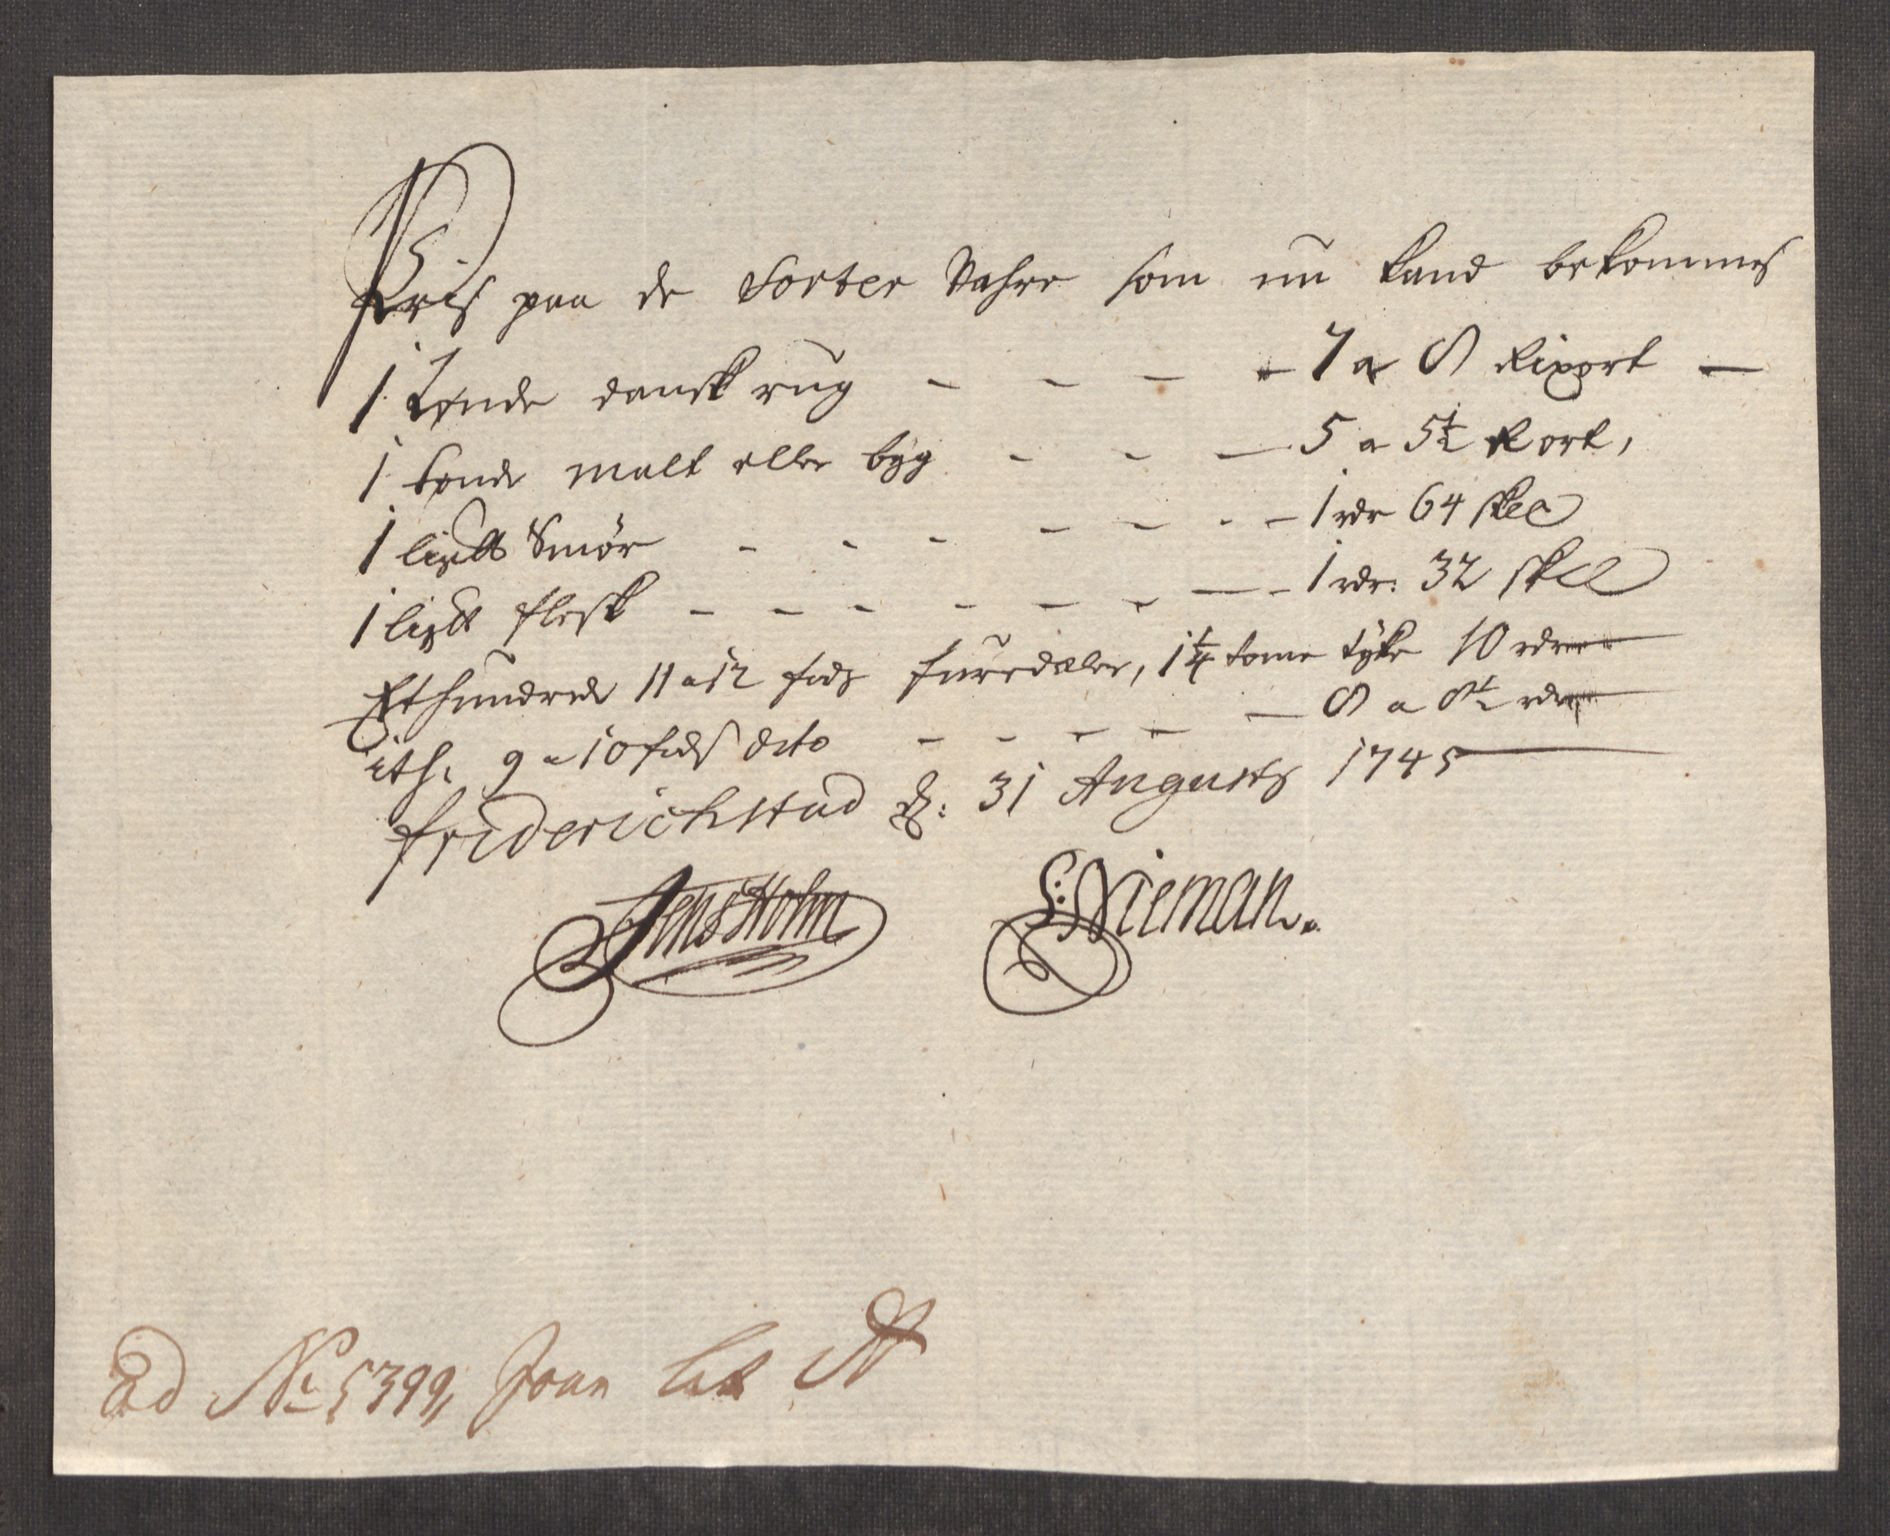 Pris paa de Sorter Vahre som nu kand bekommes
1 Tønde dansk rug - - - - 7 a 8 Rixort -
1 tønde malt eller byg - - - 5 a 5½ Rort,
1 lispd Smør - - - - - - - 1 rdr 64 skel
1 lispd flesk - - - - - - - - 1 rdr: 32 skel
Et hundrede 11 a 12 fods furedæler, 1¼ tome tyke 10 rdr
it h: 9 a 10 fods dito - - - - - 8 a 8½ rdr
friderichstad d: 31 Augusty 1745
Jens Holm
S: Nieman.
Ad No 5399, Joan lit A